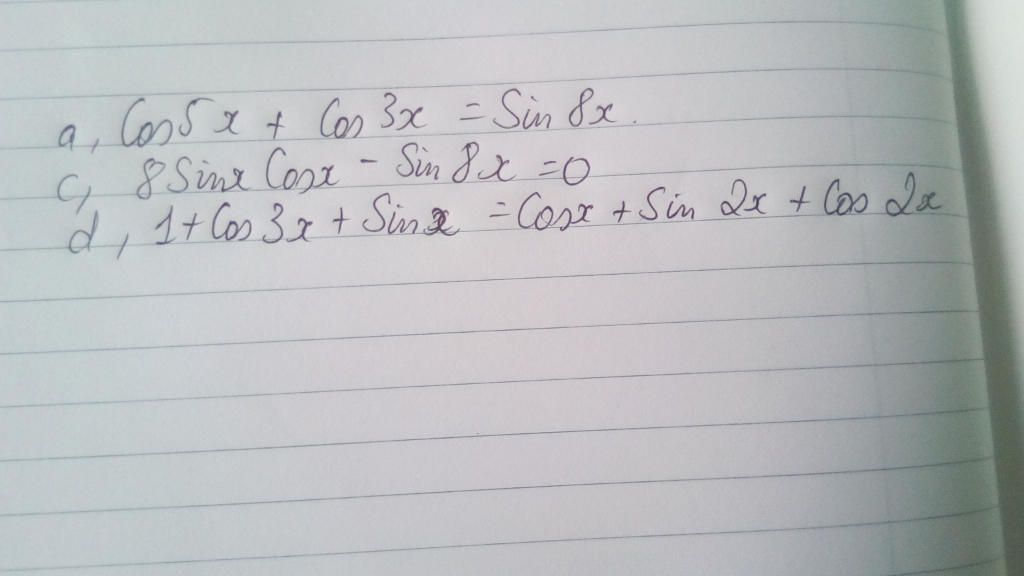 a, Cos5x + Cos 3x = Sin 8x.
c, 8 Sinx Cosx - Sin 8x = 0
d, 1 + Cos 3x + Sinx = Cosx + Sin 2x + Cos 2x